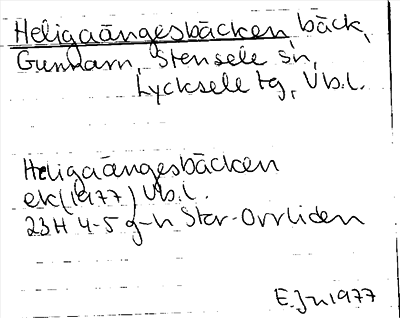 Heligaängesbäcken bäck,
Gunnarn, Stensele sn,
Lycksele tg, Vb.l.
Heligaängesbäcken
ek (1977) Vb.l.
23H 4-5 g-h Stor-Orrliden
E.Jn 1977